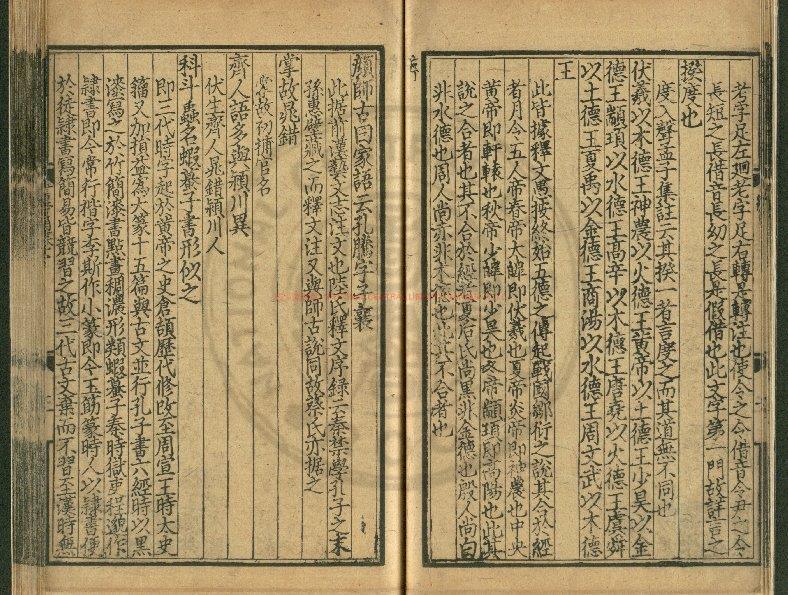 老字足左廻考字足右轉是轉注也使令之令借音令丑之令
長短之長借音長幼之長是假借也此文字第一門故詳言之
揆度也
度入聲孟子集註云其揆一者言度之而其道無不同也
伏羲以木德王神農以火德王黃帝以土德王少昊以金
德王顓頊以水德王高辛以木德王唐堯以火德王虞舜
以土德王夏禹以金德王商湯以水德王周文武以木德
王
此皆據釋文愚按終始五德之傳起戰國鄒衍之說其合於經
者月令五人帝春帝大皥即伏羲也夏帝炎帝即神農也中央
黃帝即軒轅也秋帝少皥即少昊也冬帝顓頊即高陽也此其
說之合者也其不合於經者夏后氏尚黑非金德也殷人尚白
非水德也周人尚赤非木德也此其不合者也
顏師古曰家語云孔騰字子襄
此據前漢藝文志注文也陸氏釋文序錄云秦禁學孔子之末
孫惠壁藏之而釋文注又與師古說同故蔡氏亦据之
掌故晁錯
掌故初補官名
齊人語多與潁川異
伏生齊人晁錯潁川人
科斗蟲名蝦蟇子書形似之
即三代時字起於黃帝之史倉頡歷代修改至周宣王時太史
籀又加損益爲大篆十五篇與古文並行孔子書六經時以黑
漆寫之於竹簡漆書點畫稠濃形類蝦蟇子秦時獄吏程邈作
隷書即今常行楷字李斯作小篆即今玉筯篆時人以隷書便
於徒隷書寫簡易皆競習之故三代古文棄而不習至漢時無